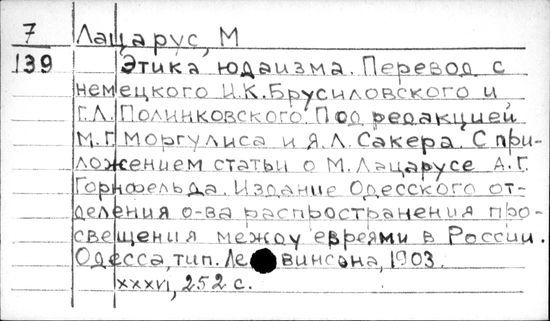 7 Лацарус, М
139 Этика юдаизма. Перевод с
немецкого И.К.Брусиловского и
Г.Л.Полинковского. Под редакцией
М.Г.Моргулиса и Я.Л.Сакера. С при-
ложением статьи о М.Лацарусе А.Г.
Горнфельда. Издание Одесского от-
деления о-ва распространения про-
свещения между евреями в России.
Одесса, тип. Левинсона, 1903.
xxxvi, 252 с.